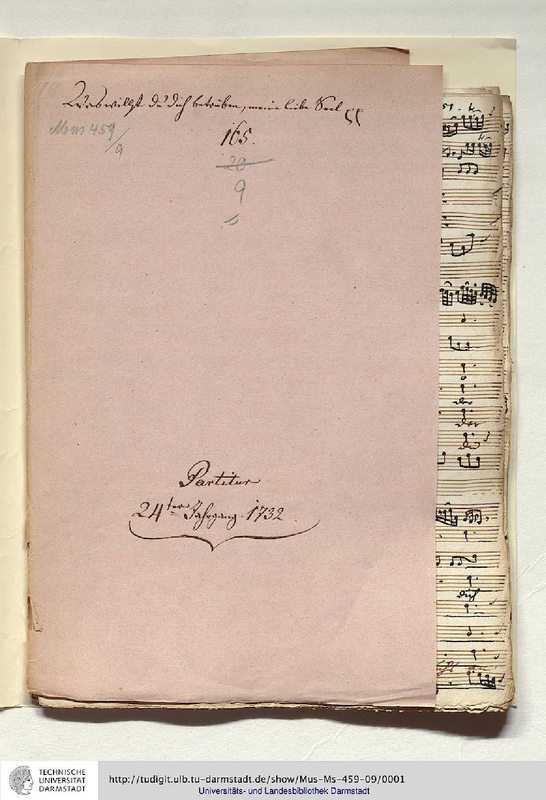 Was willst du dich betrüben, meine liebe Seel
Mus 459/9
165.
20
9
Partitur
24ter Jahrgang 1732.
der
der
dich
TECHNISCHE
UNIVERSITÄT
DARMSTADT
http://tudigit.ulb.tu-darmstadt.de/show/Mus-Ms-459-09/0001
Universitäts- und Landesbibliothek Darmstadt